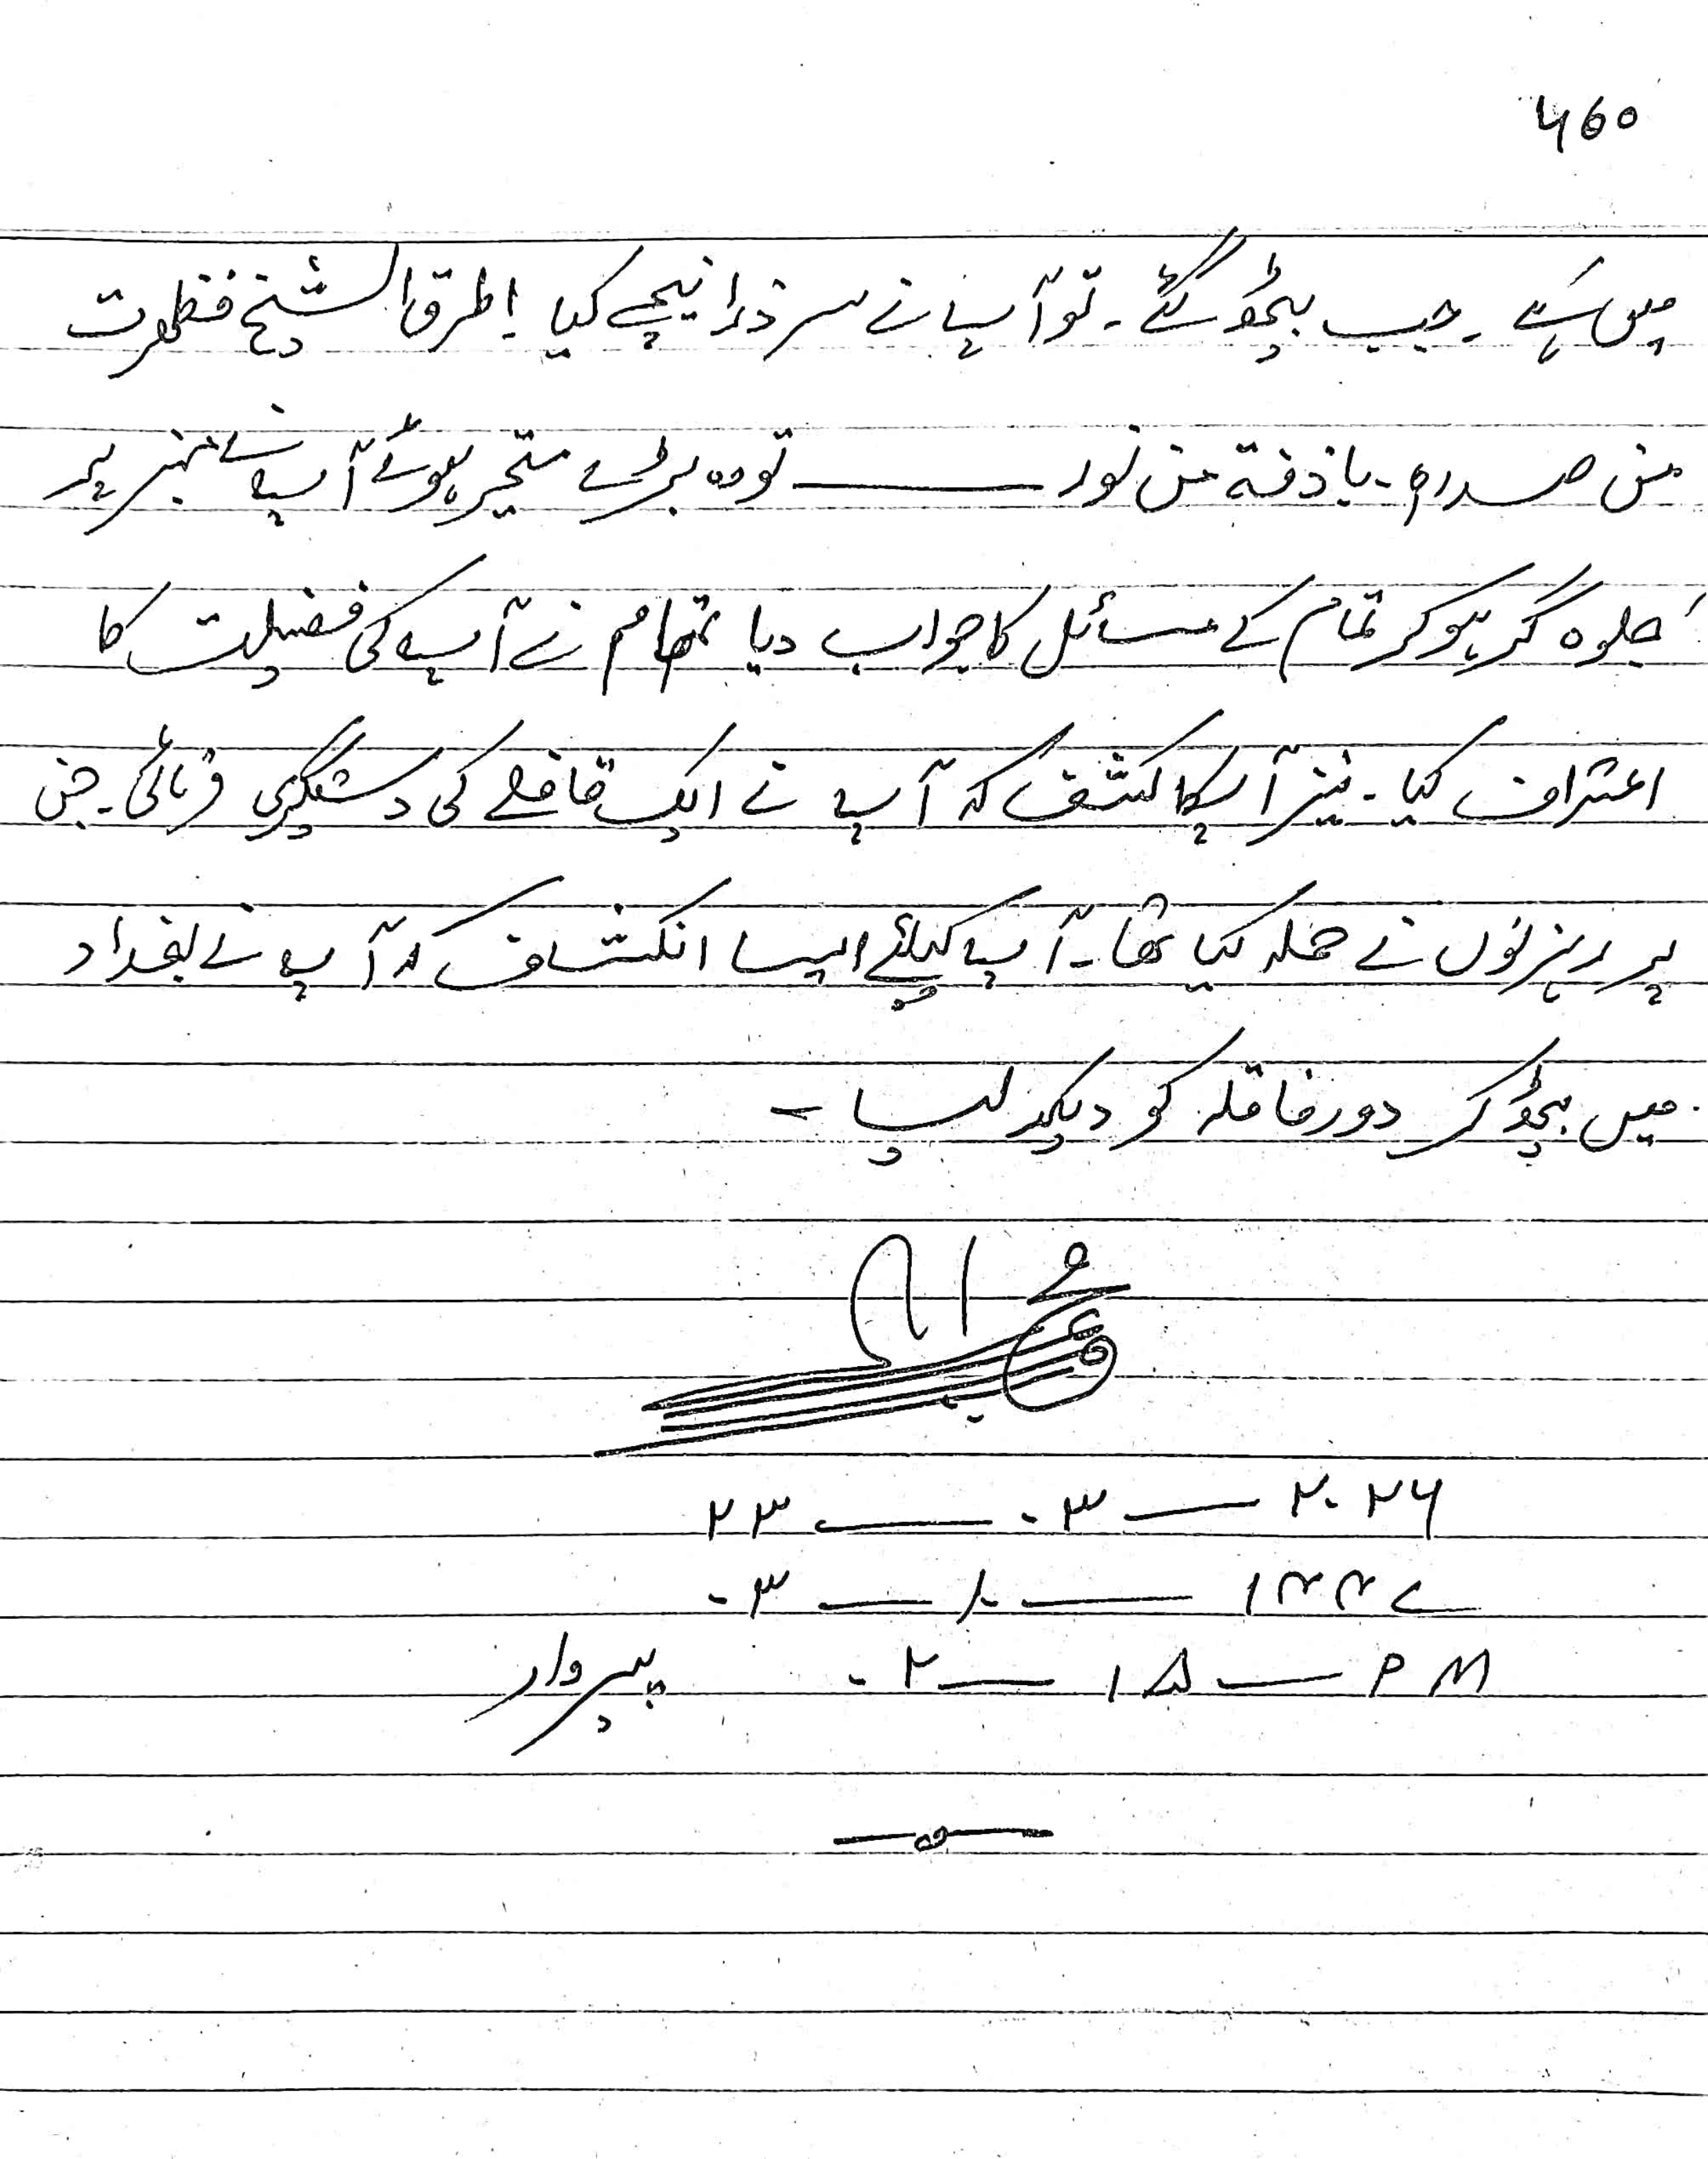 460
میں ہے ۔ جب بیٹھ گئے ۔ تو آپ نے سر ذرا نیچے کیا ۔ اطرق الشیخ فظھرت
من صدرہ ۔ بازقة من نور ــــــ تو وہ بڑے متحیر ہوئے آپ نے منبر پر
جلوہ گر ہو کر تمام کے مسائل کا جواب دیا تمام نے آپ کی فضیلت کا
اعتراف کیا ۔ نیز آپکا کشف کہ آپ نے ایک قافلے کی دستگیری فرمائی ۔ جن
پر رہزنوں نے حملہ کیا تھا ۔ آپ کیلئے ایسا انکشاف کہ آپ نے بغداد
میں بیٹھ کر دور قافلہ کو دیکھ لیا ۔
۲۳ ــــ ۰۳ ــــ ۲۰۲۶
۰۳ ــــ ۱۰ ــــ ۱۴۴۷
۰۲ ــــ ۱۵ ــــ PM پیر وار